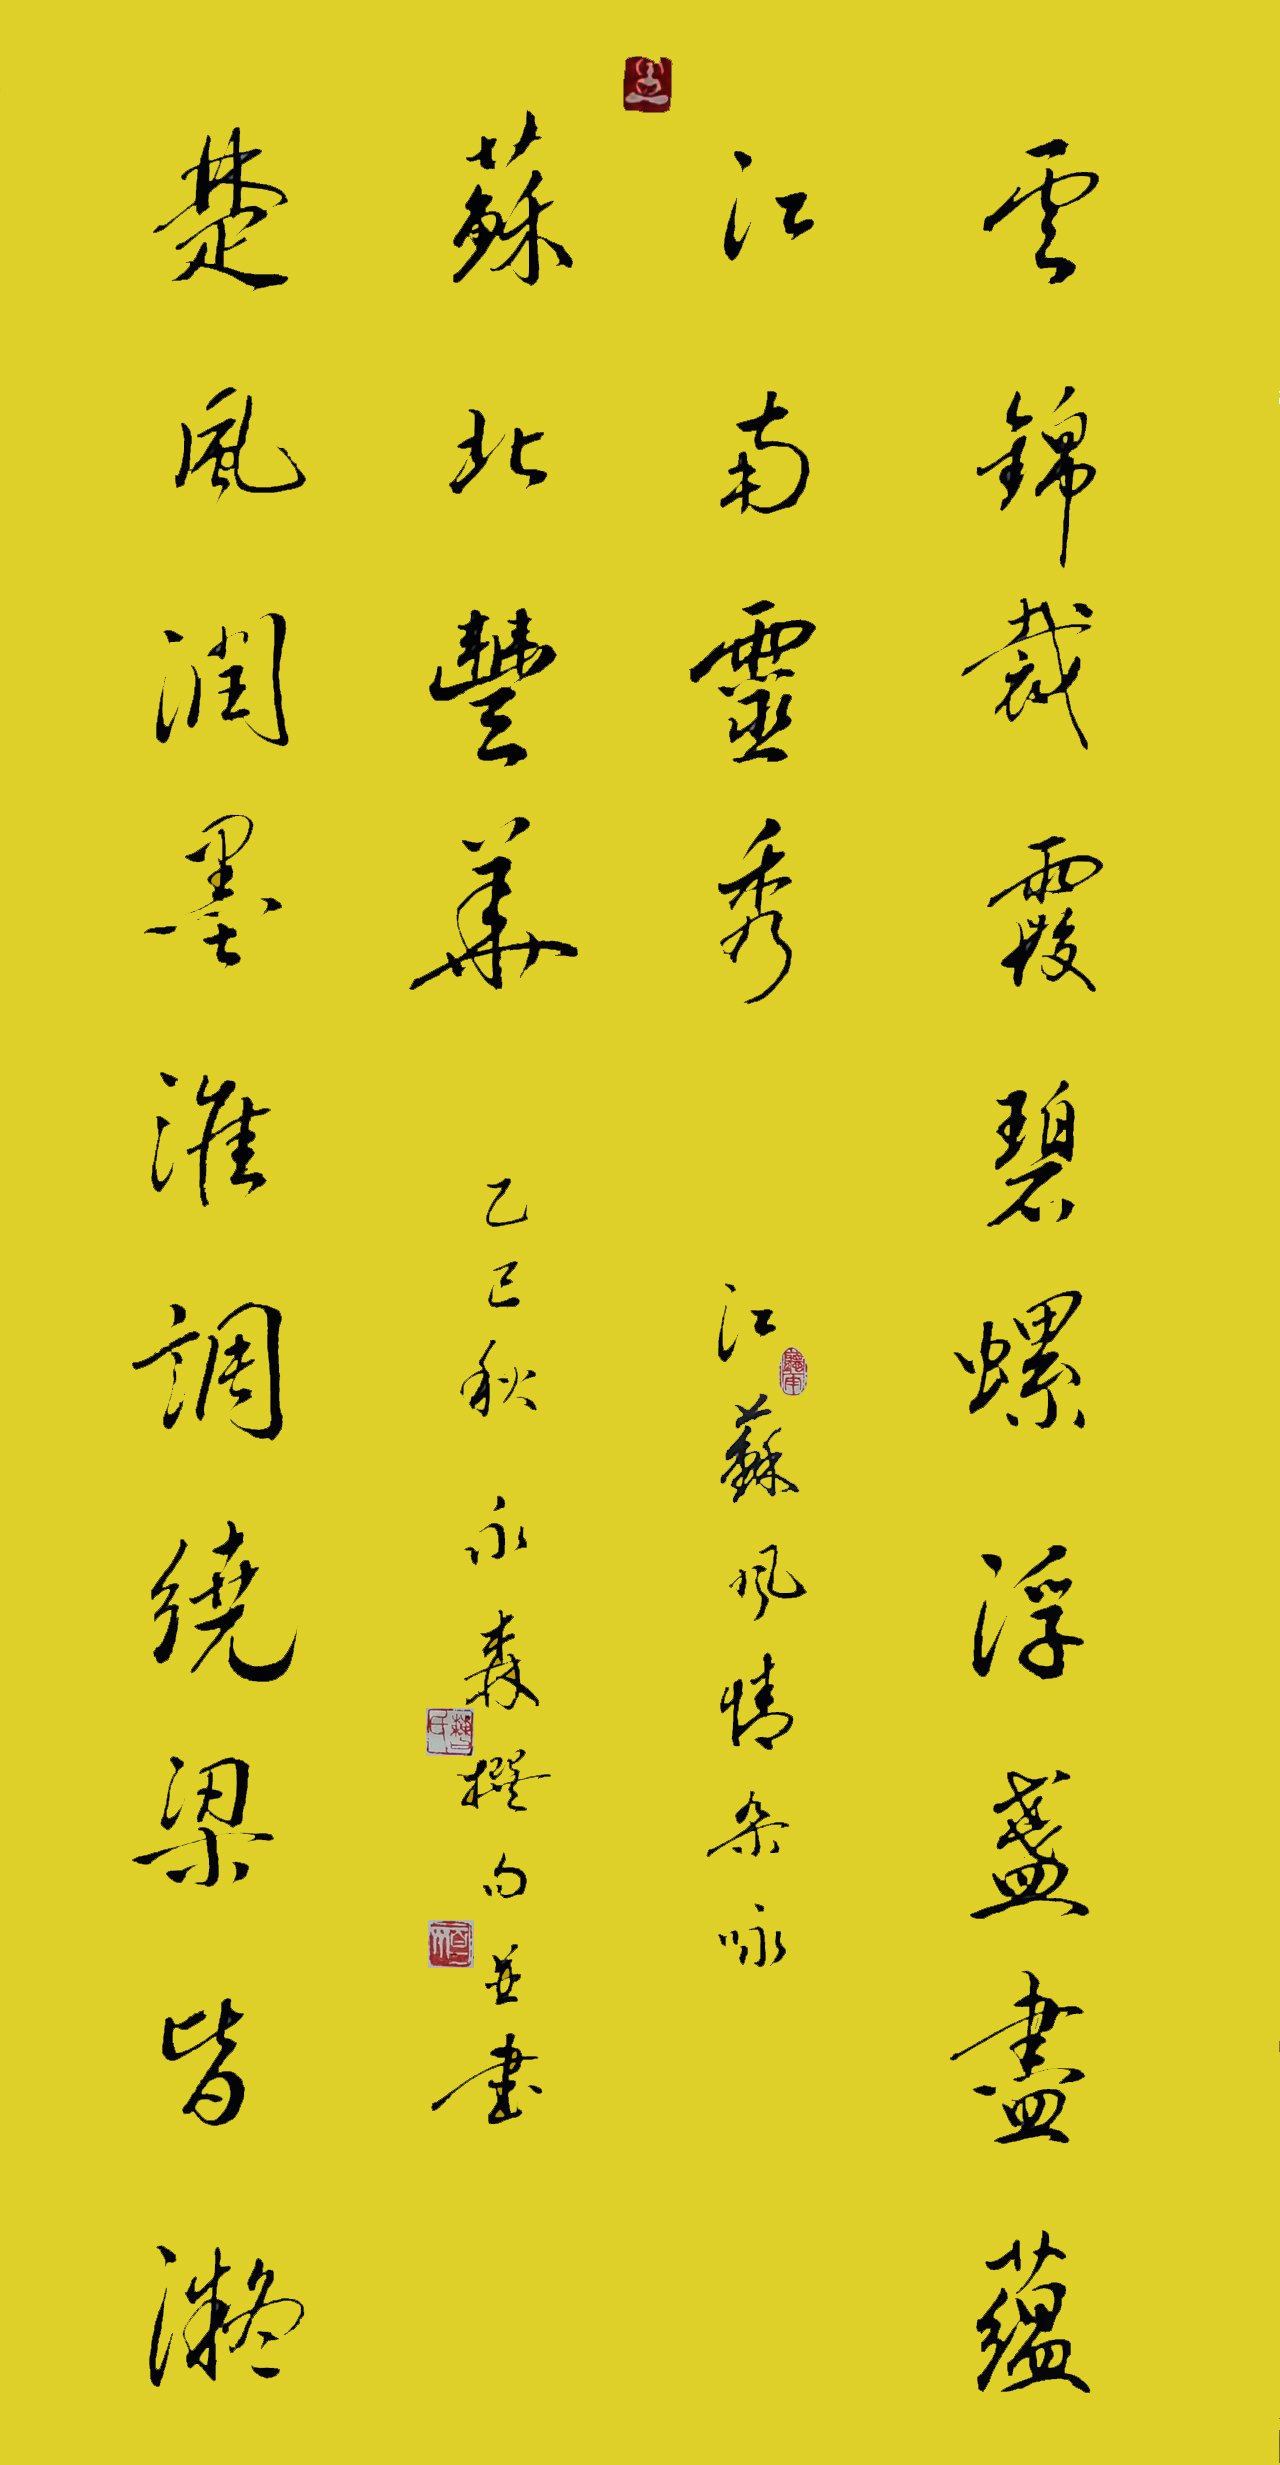 雲錦裁霞碧螺浮盞盡蘊
江南靈秀
江蘇風情杂咏
楚風潤墨淮調繞梁皆凝
蘇北豐華
乙巳秋 永森撰句並書